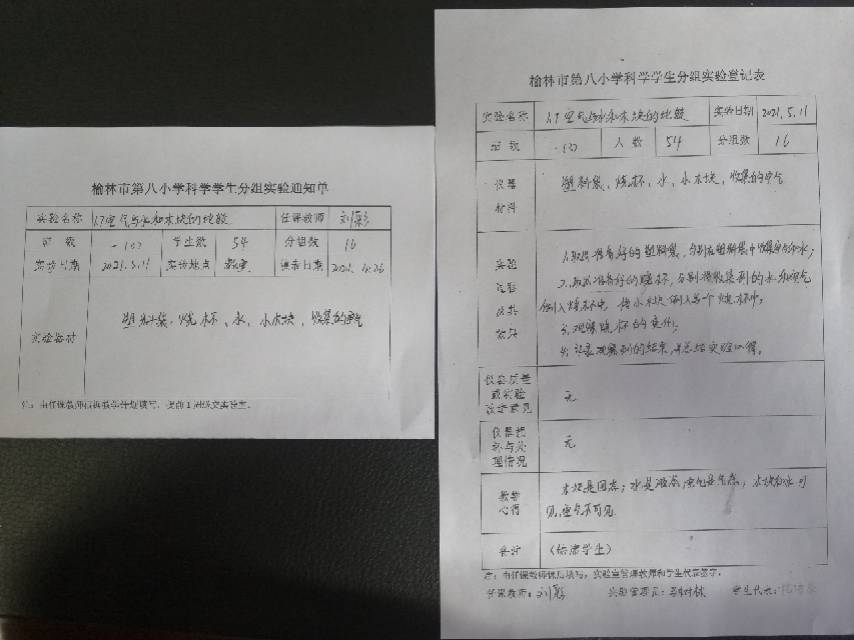 榆林市第八小学科学学生分组实验通知单
实验名称 1.7空气与水和木块的比较 任课教师
班 级 学生数 54 分组数 16
实验日期 2021.5.11 实验地点 教室 报告日期 2021.4.26
实验器材 塑料袋、烧杯、水、小木块、收集的空气
注：由任课教师按照教学计划填写，提前1周送交实验室。
榆林市第八小学科学学生分组实验登记表
实验名称 1.7空气与水和木块的比较 实验日期 2021.5.11
班 级 人 数 54 分组数 16
仪器
材料
塑料袋、烧杯、水、小木块、收集的空气
实验
1.取出准备好的塑料袋，分别在塑料袋中收集空气和水；
2.取出准备好的烧杯，分别将收集到的水和空气
倒入烧杯中，将小木块倒入另一个烧杯中；
3.观察烧杯的变化；
4.记录观察到的结果，并总结实验心得。
仪器质量
或实验
改进意见
无
仪器损
坏与处
理情况
无
教学
心得
木块是固态；水是液态；空气是气态；木块和水可
见，空气不可见。
备注
注：由任课教师课后填写，实验室管理教师和学生代表签字。
任课教师： 学生代表：